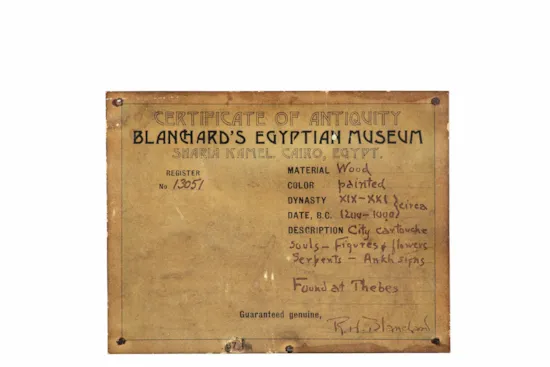 CERTIFICATE OF ANTIQUITY
BLANCHARD'S EGYPTIAN MUSEUM
SHARIA KAMEL. CAIRO, EGYPT.
REGISTER
No 13051
MATERIAL Wood
COLOR painted
DYNASTY XIX-XXI } circa
DATE, B.C. 1200-1090
DESCRIPTION City cartouche
souls - Figures & flowers
Serpents - Ankh signs
Found at Thebes
Guaranteed genuine,
Blanchard